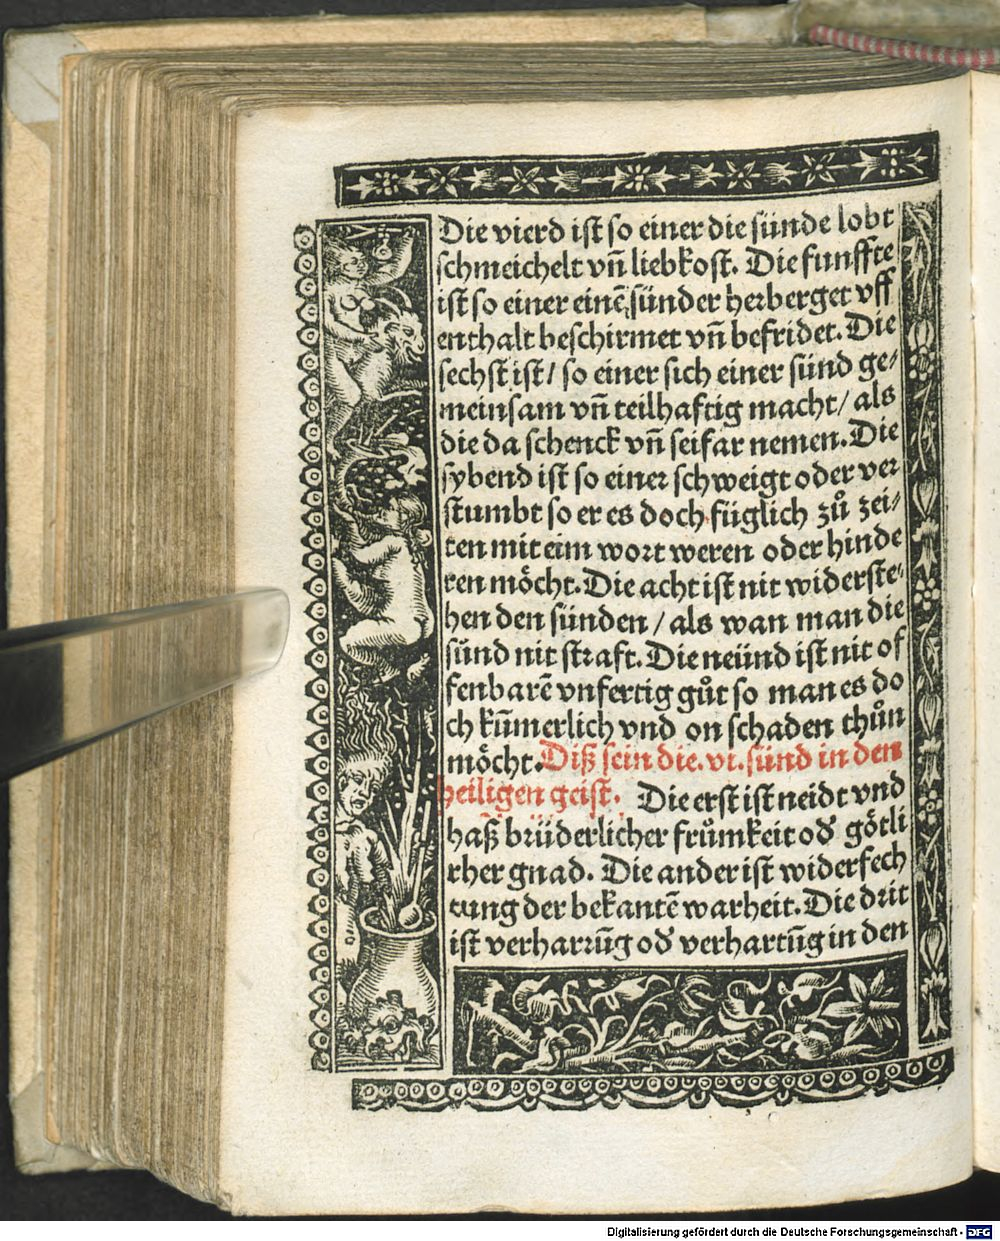 Die vierd ist so einer die sünde lobt
schmeichelt vn̄ liebkost. Die funffte
ist so einer einē sünder herberget vff
enthalt beschirmet vn̄ befridet. Die
sechst ist / so einer sich einer sünd ge⸗
meinsam vn̄ teilhaftig macht / als
die da schenck vn̄ seifar nemen. Die
sybend ist so einer schweigt oder ver
stumbt so er es doch füglich zů zei⸗
ten mit eim wort weren oder hinde
ren möcht. Die acht ist nit widerste⸗
hen den sünden / als wan man die
sünd nit straft. Die neünd ist nit of
fenbarē vnfertig gůt so man es do
ch kūmerlich vnd on schaden thůn
möcht. Diß sein die. vi. sünd in den
heiligen geist. Die erst ist neidt vnd
haß brüderlicher frůmkeit oď götli
cher gnad. Die ander ist widerfech
tung der bekantē warheit. Die drit
ist verharrūg oď verhartūg in den
Digitalisierung gefördert durch die Deutsche Forschungsgemeinschaft - DFG